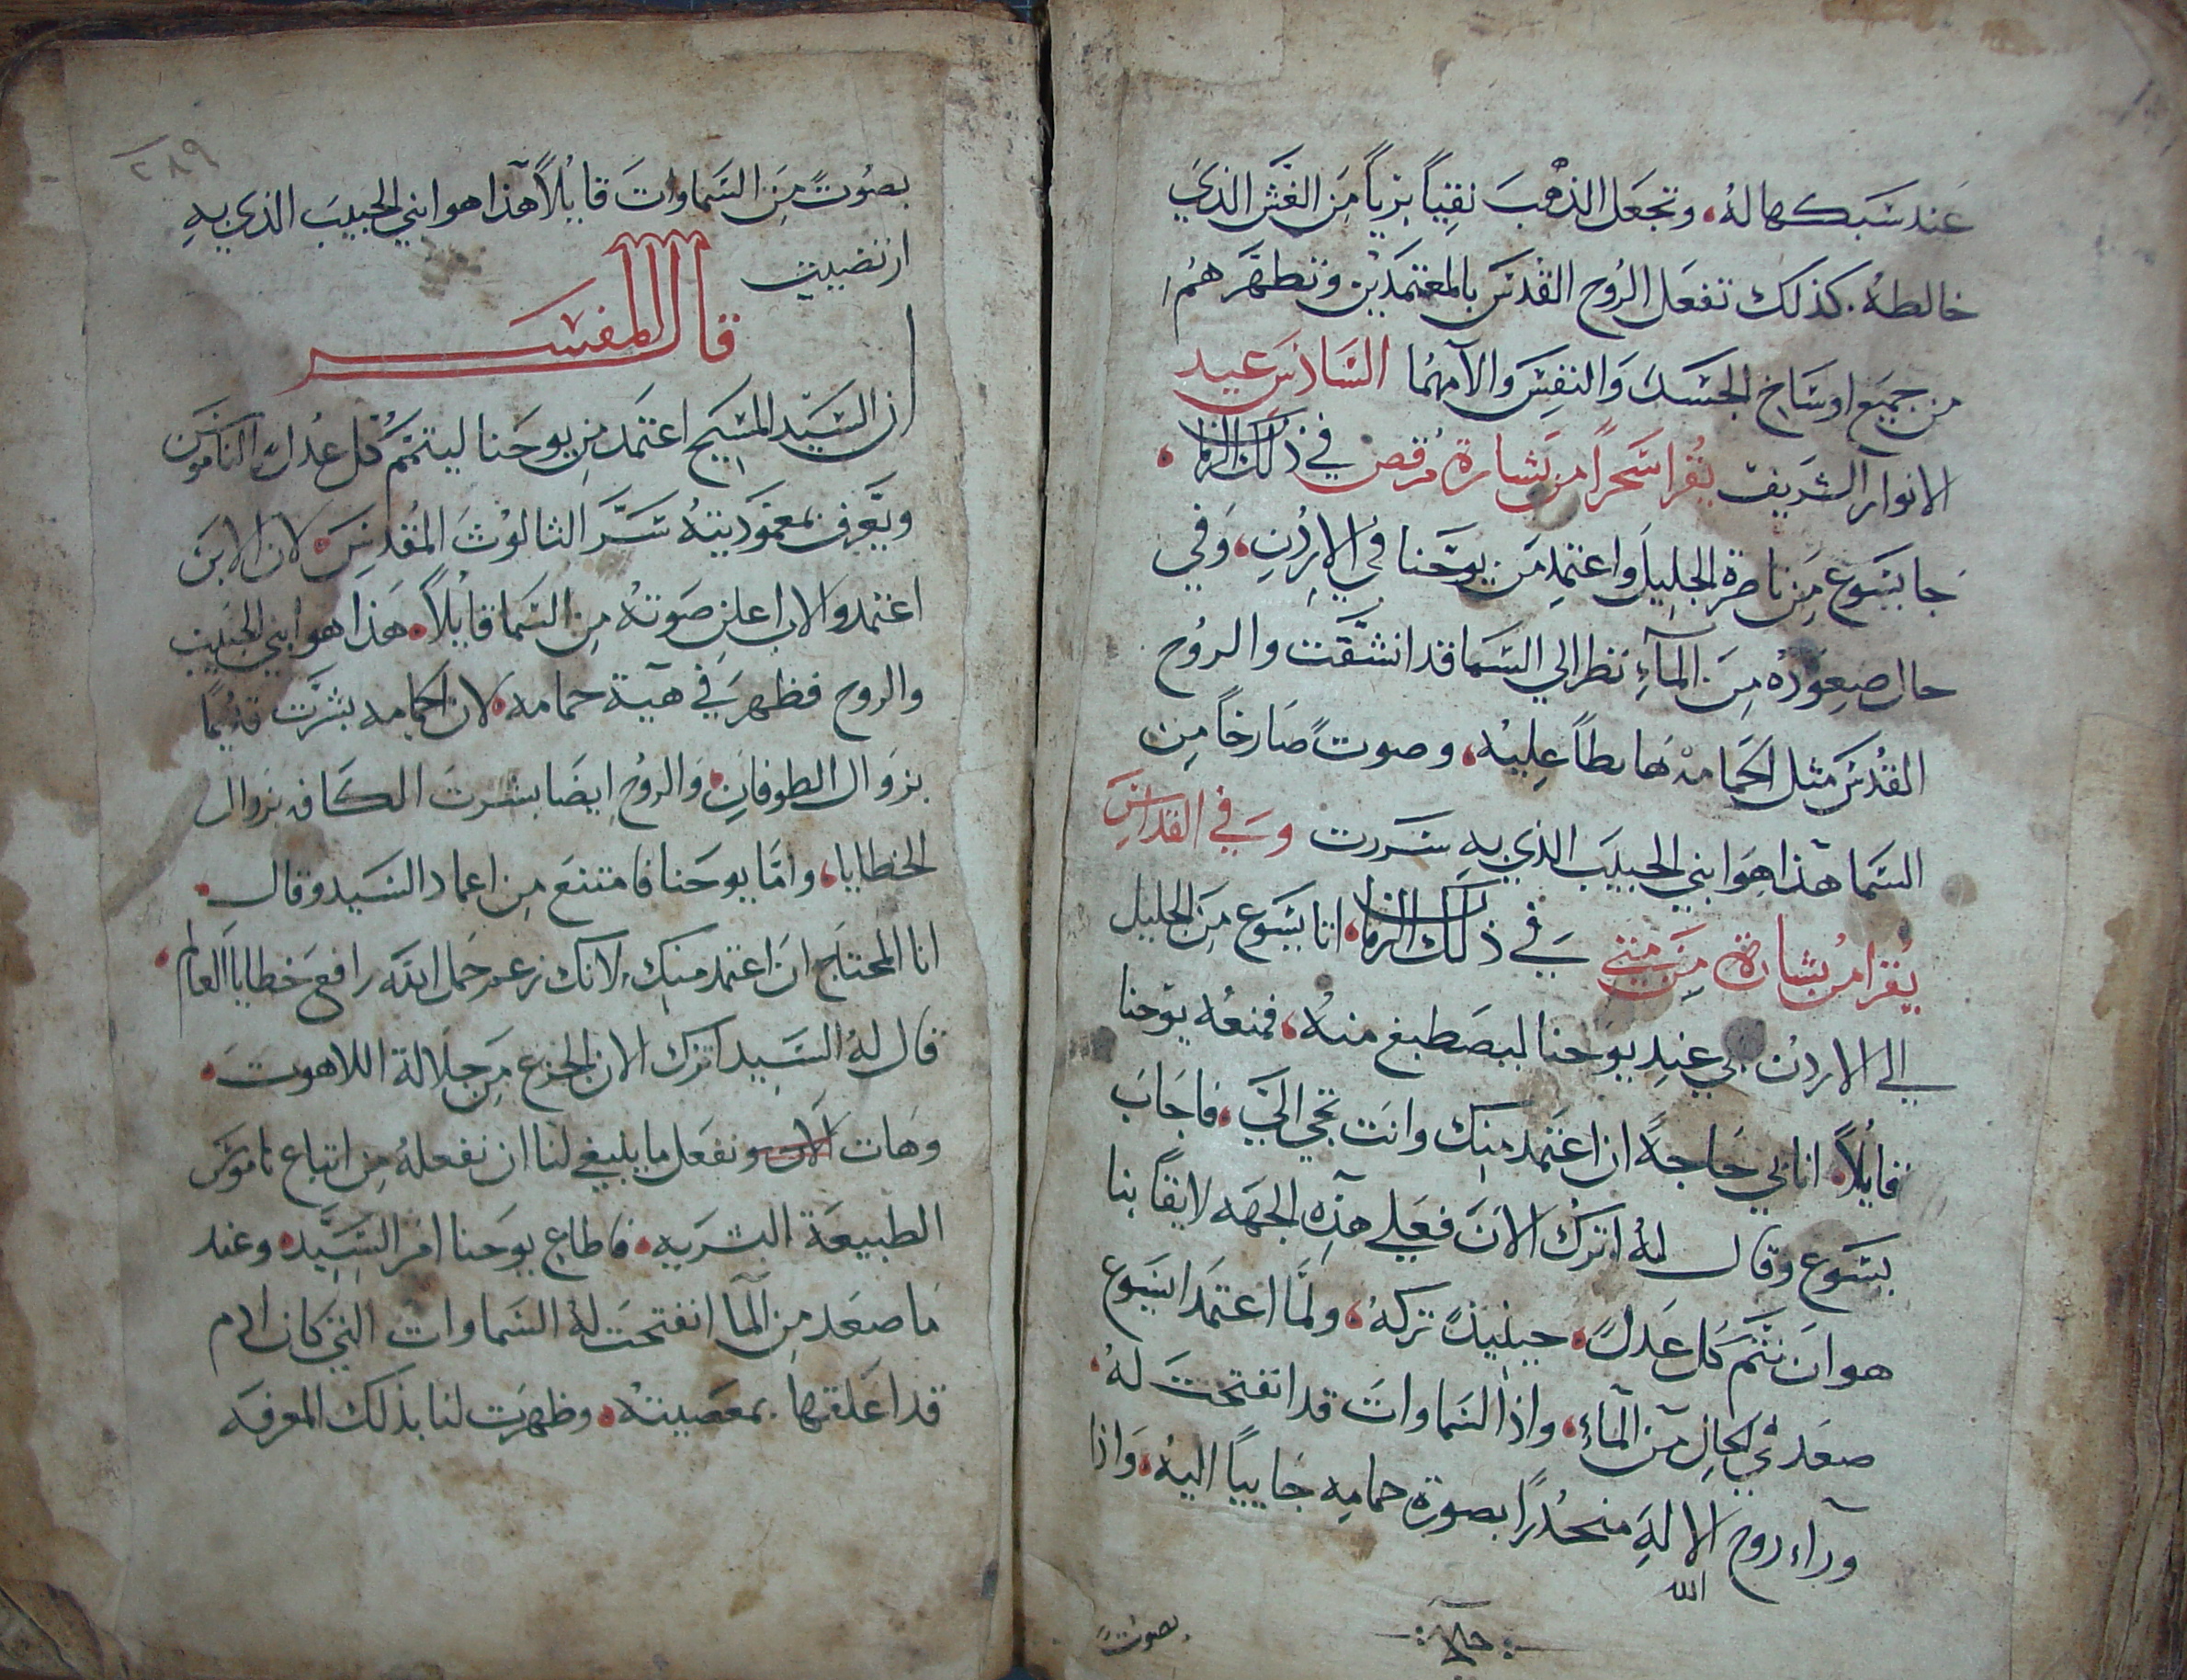 عند سَبكها لهُ، وتجعل الذهبَ نقِياً بزياً مِن الغَش الذيَ
خالطهُ. كذلك تفعَل الرُوح القُدسَ بالمعتمَديْن وَتطهَرَهمُ
من جميَع اوسَاخ الجَسَدَ وَالنفسَ والآمهُما السَادسَ عيد
الانوار الشريف يُقرا سَحراً من بَشارة مرقص في ذلك الزمان
جَا يسَوع مِن ناصَرة الجليلَ واعتمِد مَن يوحَنا في الاردُنِ، وَفي
حال صعِوُدُه مِنَ المآءِ نظر الي السَمَا قد انشقَت والروُح
القُدسَ مثل الحَمامهْ هَابطاً عِليهْ، وصوتً صَارخاً مِن
السَما هَذا هِوَ ابني الحبيبَ الذي بهِ سَررت وَفي القداسِ
يُقرا من بشارة مِن متي في ذلك الزمان، اتا يسَوع مِنَ الجليل
الي الاردنْ الي عندِ يوحَنا ليصَطبغ منهُ، فمنعُه يوَحنا
قايُلاً، انا بي حَاجهً ان اعتَمد منِك وانتَ تجي اليَ، فاجَابَ
يسَوع وقال لهُ اترك الانَ فعَلي هَذِه الجهَه لايقاً بنا
هو انَ نتمَ كُل عَدلً، حينيذً تركهُ، ولمَا اعتمَد ايسَوع
صعَد في الحالِ مَن المآءِ، واذا السَماواتَ قد انفتحَتَ لهُ
ورآء روح الالهِ منحُدرًا بصورَة حمامهِ جَاييًا اليهُ، وَاذا
الله
بصوتً
بصُوتً مِنَ السَماواتَ قايُلاً هَذا هو ابني الحَبيبَ الذي بهِ
ارتضيت
قال المفسَر
ان السَيَد المسَيح اعتمَد مِن يوحَنا ليتممَ كُل عُدل الناموسَ
ويَعرف بمعَموُديتهُ سَرَ الثالوثَ المُقدسَ، لان الابنَ
اعتمد والاب اعلن صَوتهُ مِن السَما قايُلاً، هَذا هو ابني الحَبيبَ
والروح فظهرَ في هَيَة حمامه، لان الحمامه بشَرَت قديُمًا
بزوَال الطوفانِ، وَالروُح ايضَا بشرتَ الكافه بزوال
الخطايا، وامَا يوحَنا فامتنعَ مِن اعماد السَيد وقال،
انا المحتاج انَ اعتمد منك، لانك زعم حَمل اللَه رافعَ خطايا العالم،
قال لهُ السَيد اترك الان الجزع مِن جلالة اللاهوت،
وهَات الان ونفعَل ما ينبغي لنا ان نفعلهُ مِن اتباع ناموسَ
الطبيعَة البشريهِ، فاطاع يوحَنا امَر السَيَد، وعَند
مَا صعَد مِن المآ انفتحَت لهُ السَماوات التي كان ادم
قد اغلقهَا بمعَصيتهْ، وظهرَت لنا بذلك المعرفَه
٢٨٩